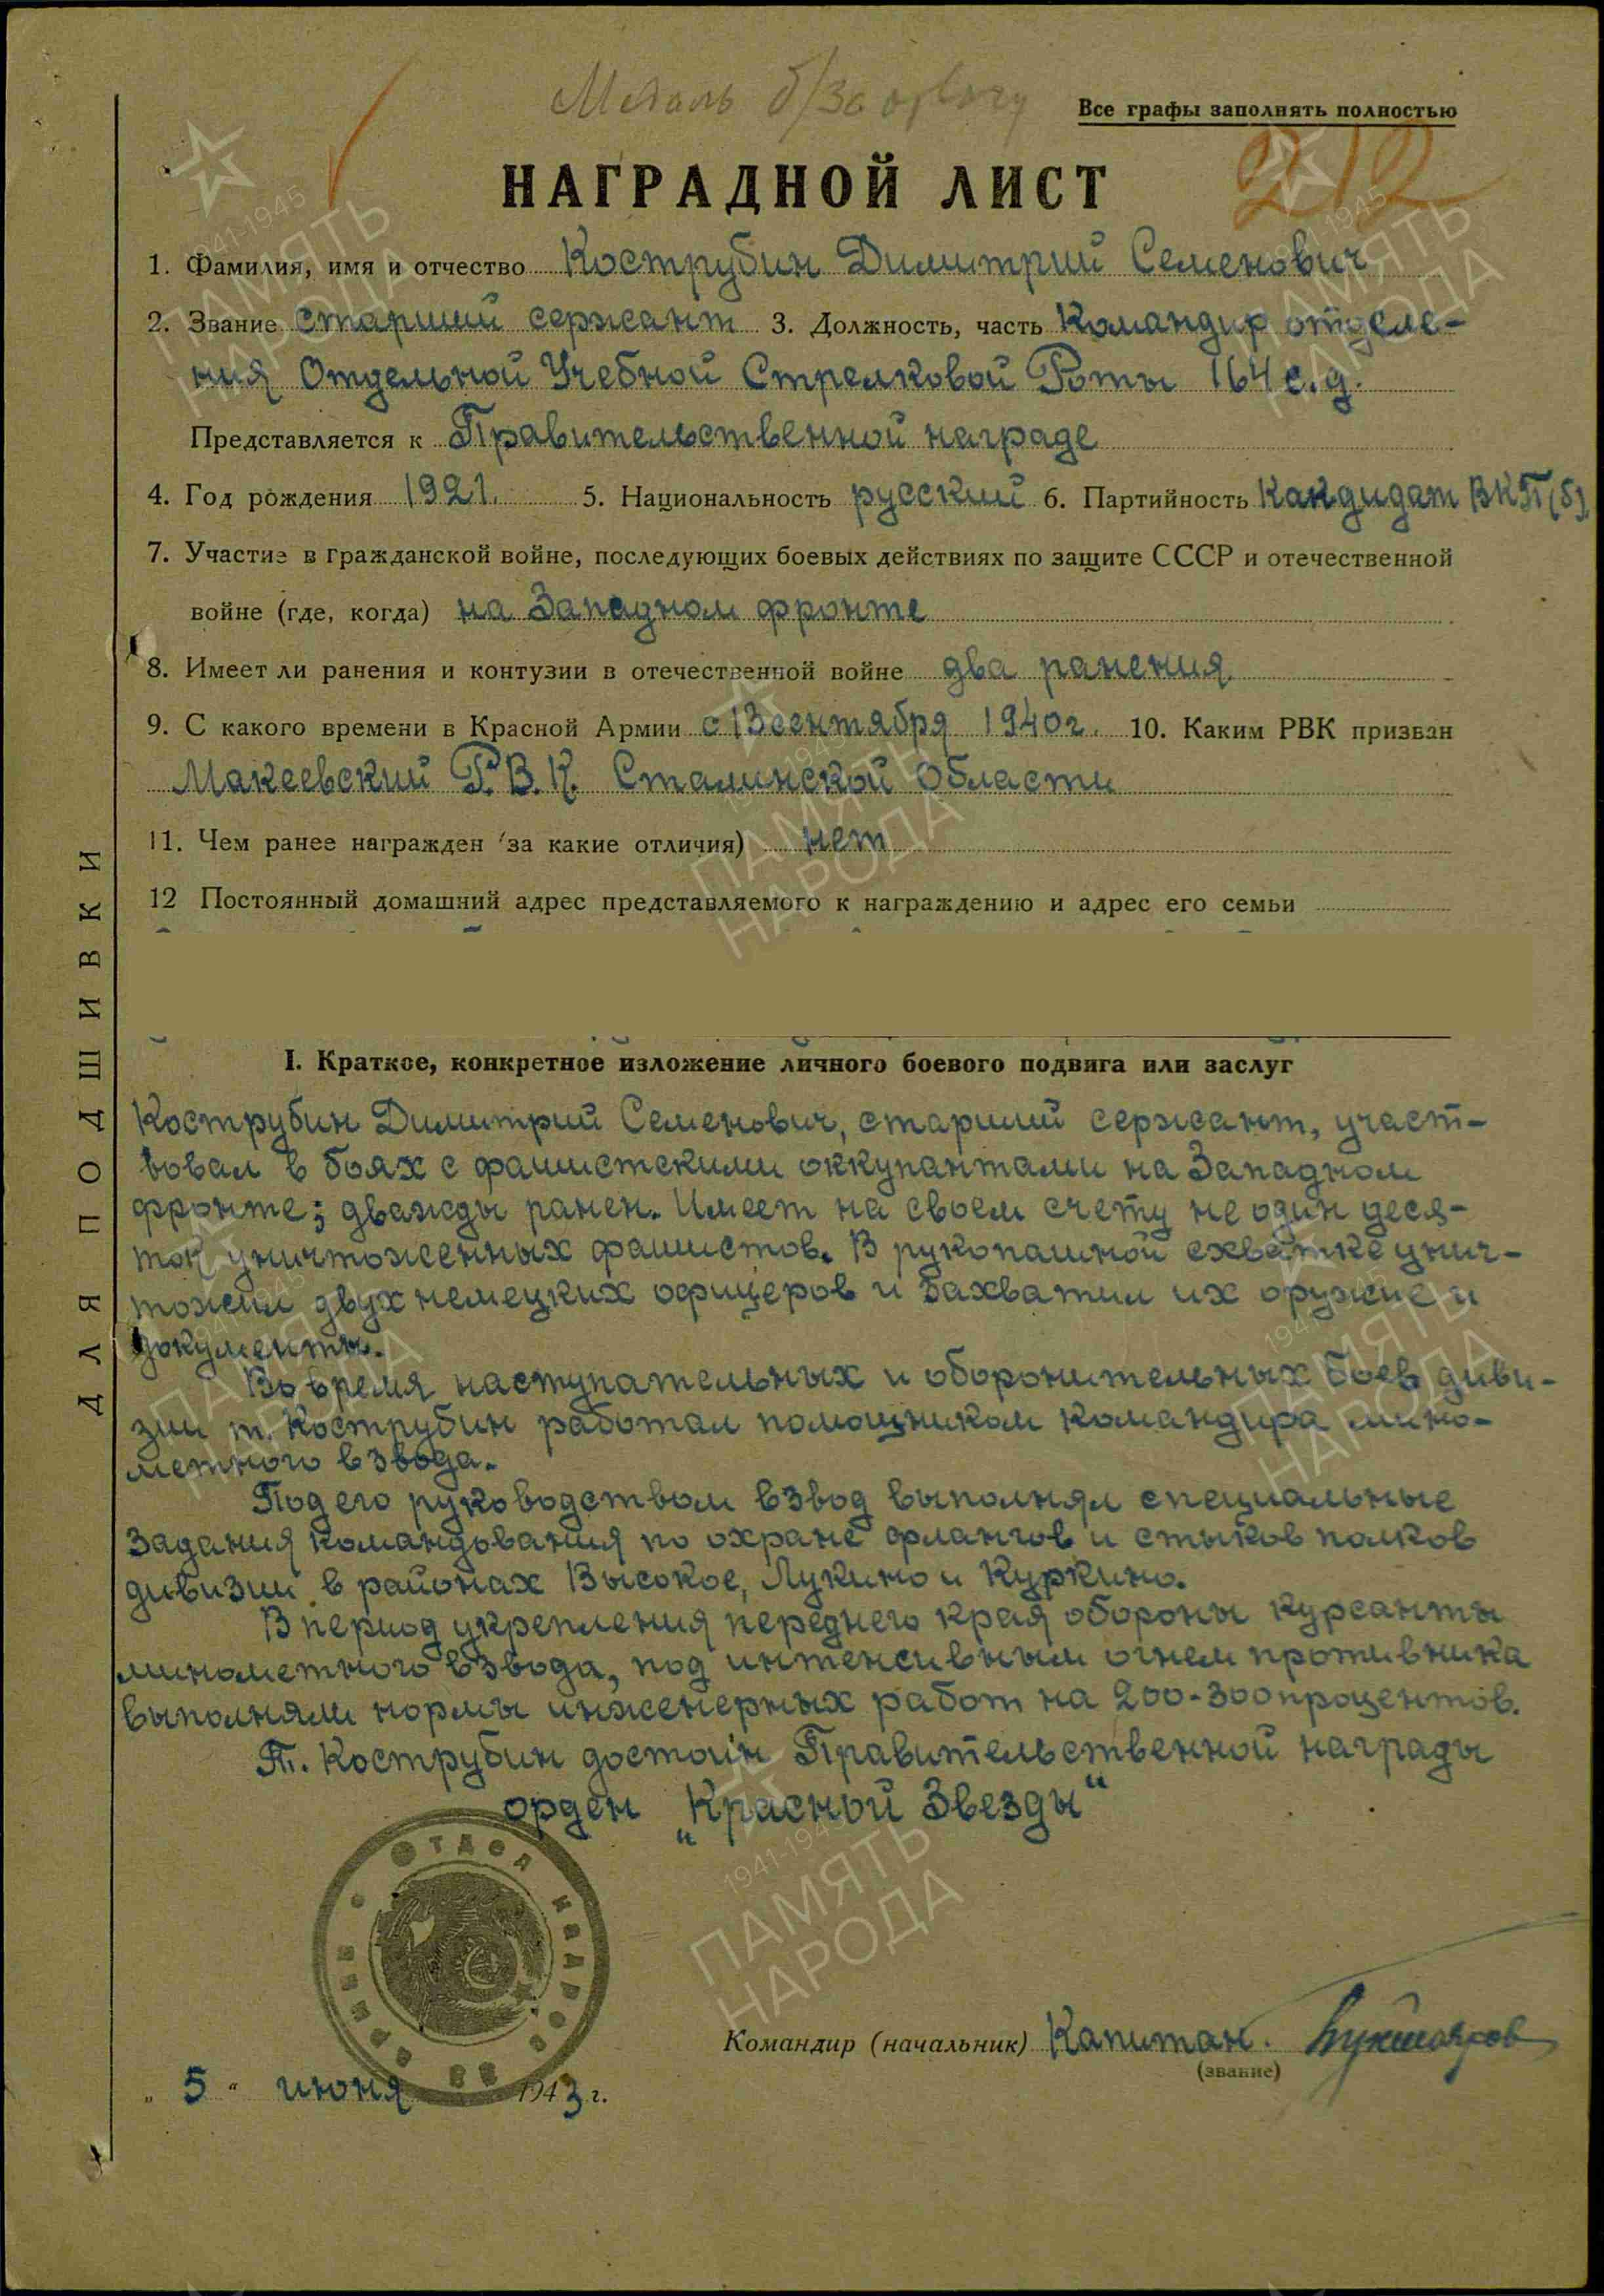 Медаль б/За отвагу
Все графы заполнять полностью
212
НАГРАДНОЙ ЛИСТ
1. Фамилия, имя и отчество Кострубин Димитрий Семенович
2. Звание старший сержант 3. Должность, часть Командир отделе-
ния Отдельной Учебной Стрелковой Роты 164 с.д.
Представляется к Правительственной награде
4. Год рождения 1921. 5. Национальность русский 6. Партийность Кандидат ВКП(б)
7. Участие в гражданской войне, последующих боевых действиях по защите СССР и отечественной
войне (где, когда) на Западном фронте
8. Имеет ли ранения и контузии в отечественной войне два ранения
9. С какого времени в Красной Армии с 13 сентября 1940 г. 10. Каким РВК призван
Макеевский Р.В.К. Сталинской Области
11. Чем ранее награжден (за какие отличия) нет
12 Постоянный домашний адрес представляемого к награждению и адрес его семьи
I. Краткое, конкретное изложение личного боевого подвига или заслуг
Кострубин Димитрий Семенович, старший сержант, участ-
вовал в боях с фашистскими оккупантами на Западном
фронте; дважды ранен. Имеет на своем счету не один деся-
ток уничтоженных фашистов. В рукопашной схватке унич-
тожил двух немецких офицеров и захватил их оружие и
документы.
Во время наступательных и оборонительных боев диви-
зии т. Кострубин работал помощником командира мино-
метного взвода.
Под его руководством взвод выполнял специальные
задания командования по охране флангов и стыков полков
дивизии в районах Высокое, Лукино и Куркино.
В период укрепления переднего края обороны курсанты
минометного взвода, под интенсивным огнем противника
выполняли нормы инженерных работ на 200-300 процентов.
Т. Кострубин достоин Правительственной награды
орден „Красной Звезды“
ОТДЕЛ КАДРОВ
Командир (начальник) Капитан.
(звание)
„ 5 “ июня 1943 г.
ДЛЯ ПОДШИВКИ
1941-1945
ПАМЯТЬ
НАРОДА